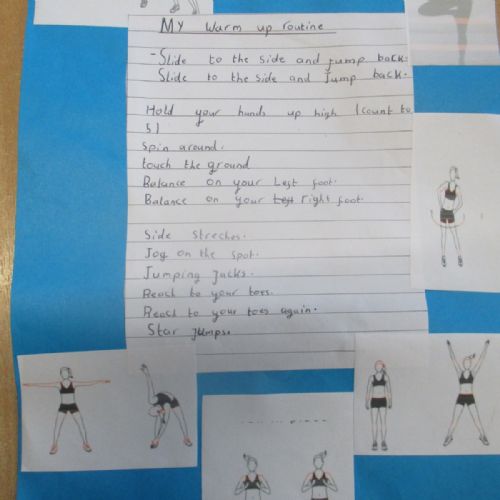 My warm up routine
-Slide to the side and jump back.
Slide to the side and Jump back.
Hold your hands up high (count to
5)
Spin around.
touch the ground
Balance on your Left foot.
Balance on your left right foot.
Side streches.
Jog on the spot.
Jumping Jacks.
Reach to your toes.
Reach to your toes again.
Star Jumps.